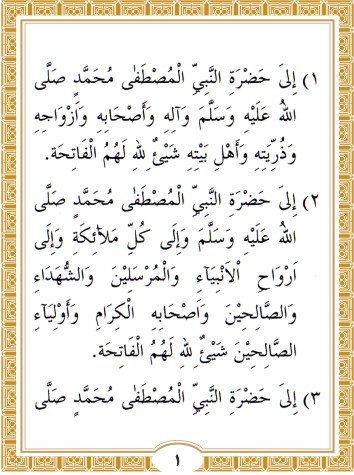 ١) إِلىَ حَضْرَةِ النَّبِيِّ الْمُصْطَفٰى مُحَمَّدٍ صَلَّى
اللهُ عَلَيْهِ وَسَلَّمَ وَآلِهِ وَأَصْحَابِهِ وَاَزْوَاجِهِ
وَذُرِّيَتِهِ وَأَهْلِ بَيْتِهِ شَيْئٌ لِلهِ لَهُمُ الْفَاتِحَة.
٢) إِلىَ حَضْرَةِ النَّبِيِّ الْمُصْطَفٰى مُحَمَّدٍ صَلَّى
اللهُ عَلَيْهِ وَسَلَّمَ وَإِلَى كُلِّ مَلآئِكَةِ وَإِلَى
اَرْوَاحِ الْاَنْبِيَآءِ وَالْمُرْسَلِيْنَ وَالشُّهَدَاءِ
وَالصَّالِحِيْنَ وَاَصْحَابِهِ الْكِرَامِ وَأَوْلِيَآءِ
الصَّالِحِيْنَ شَيْئٌ لِلهِ لَهُمُ الْفَاتِحَة.
٣) إِلىَ حَضْرَةِ النَّبِيِّ الْمُصْطَفٰى مُحَمَّدٍ صَلَّى
١